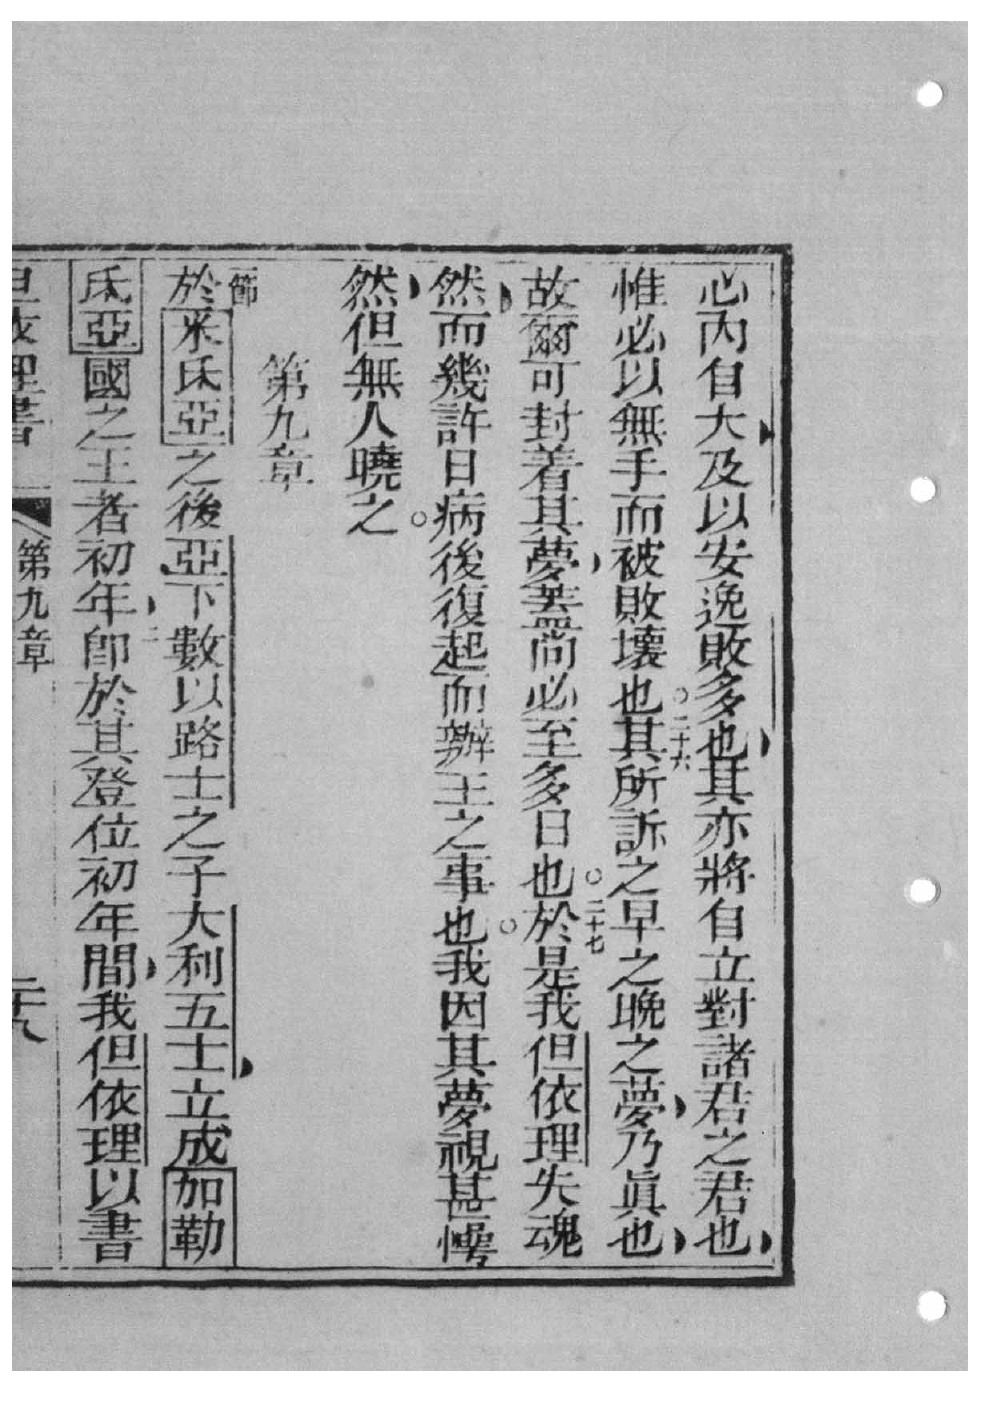 必內自大及以安逸敗多也其亦將自立對諸君之君也
惟必以無手而被敗壞也○二十六其所訴之早之晩之夢乃眞也
故爾可封着其夢蓋尚必至多日也○二十七於是我但依理失魂
然而幾許日病後復起而辦王之事也○我因其夢視甚愕
然但無人曉之○
第九章
節於米氐亞之後亞下數以路士之子大利五士立成加勒
氐亞國之王者初年二卽於其登位初年間我但依理以書
但依理書 第九章 二十八